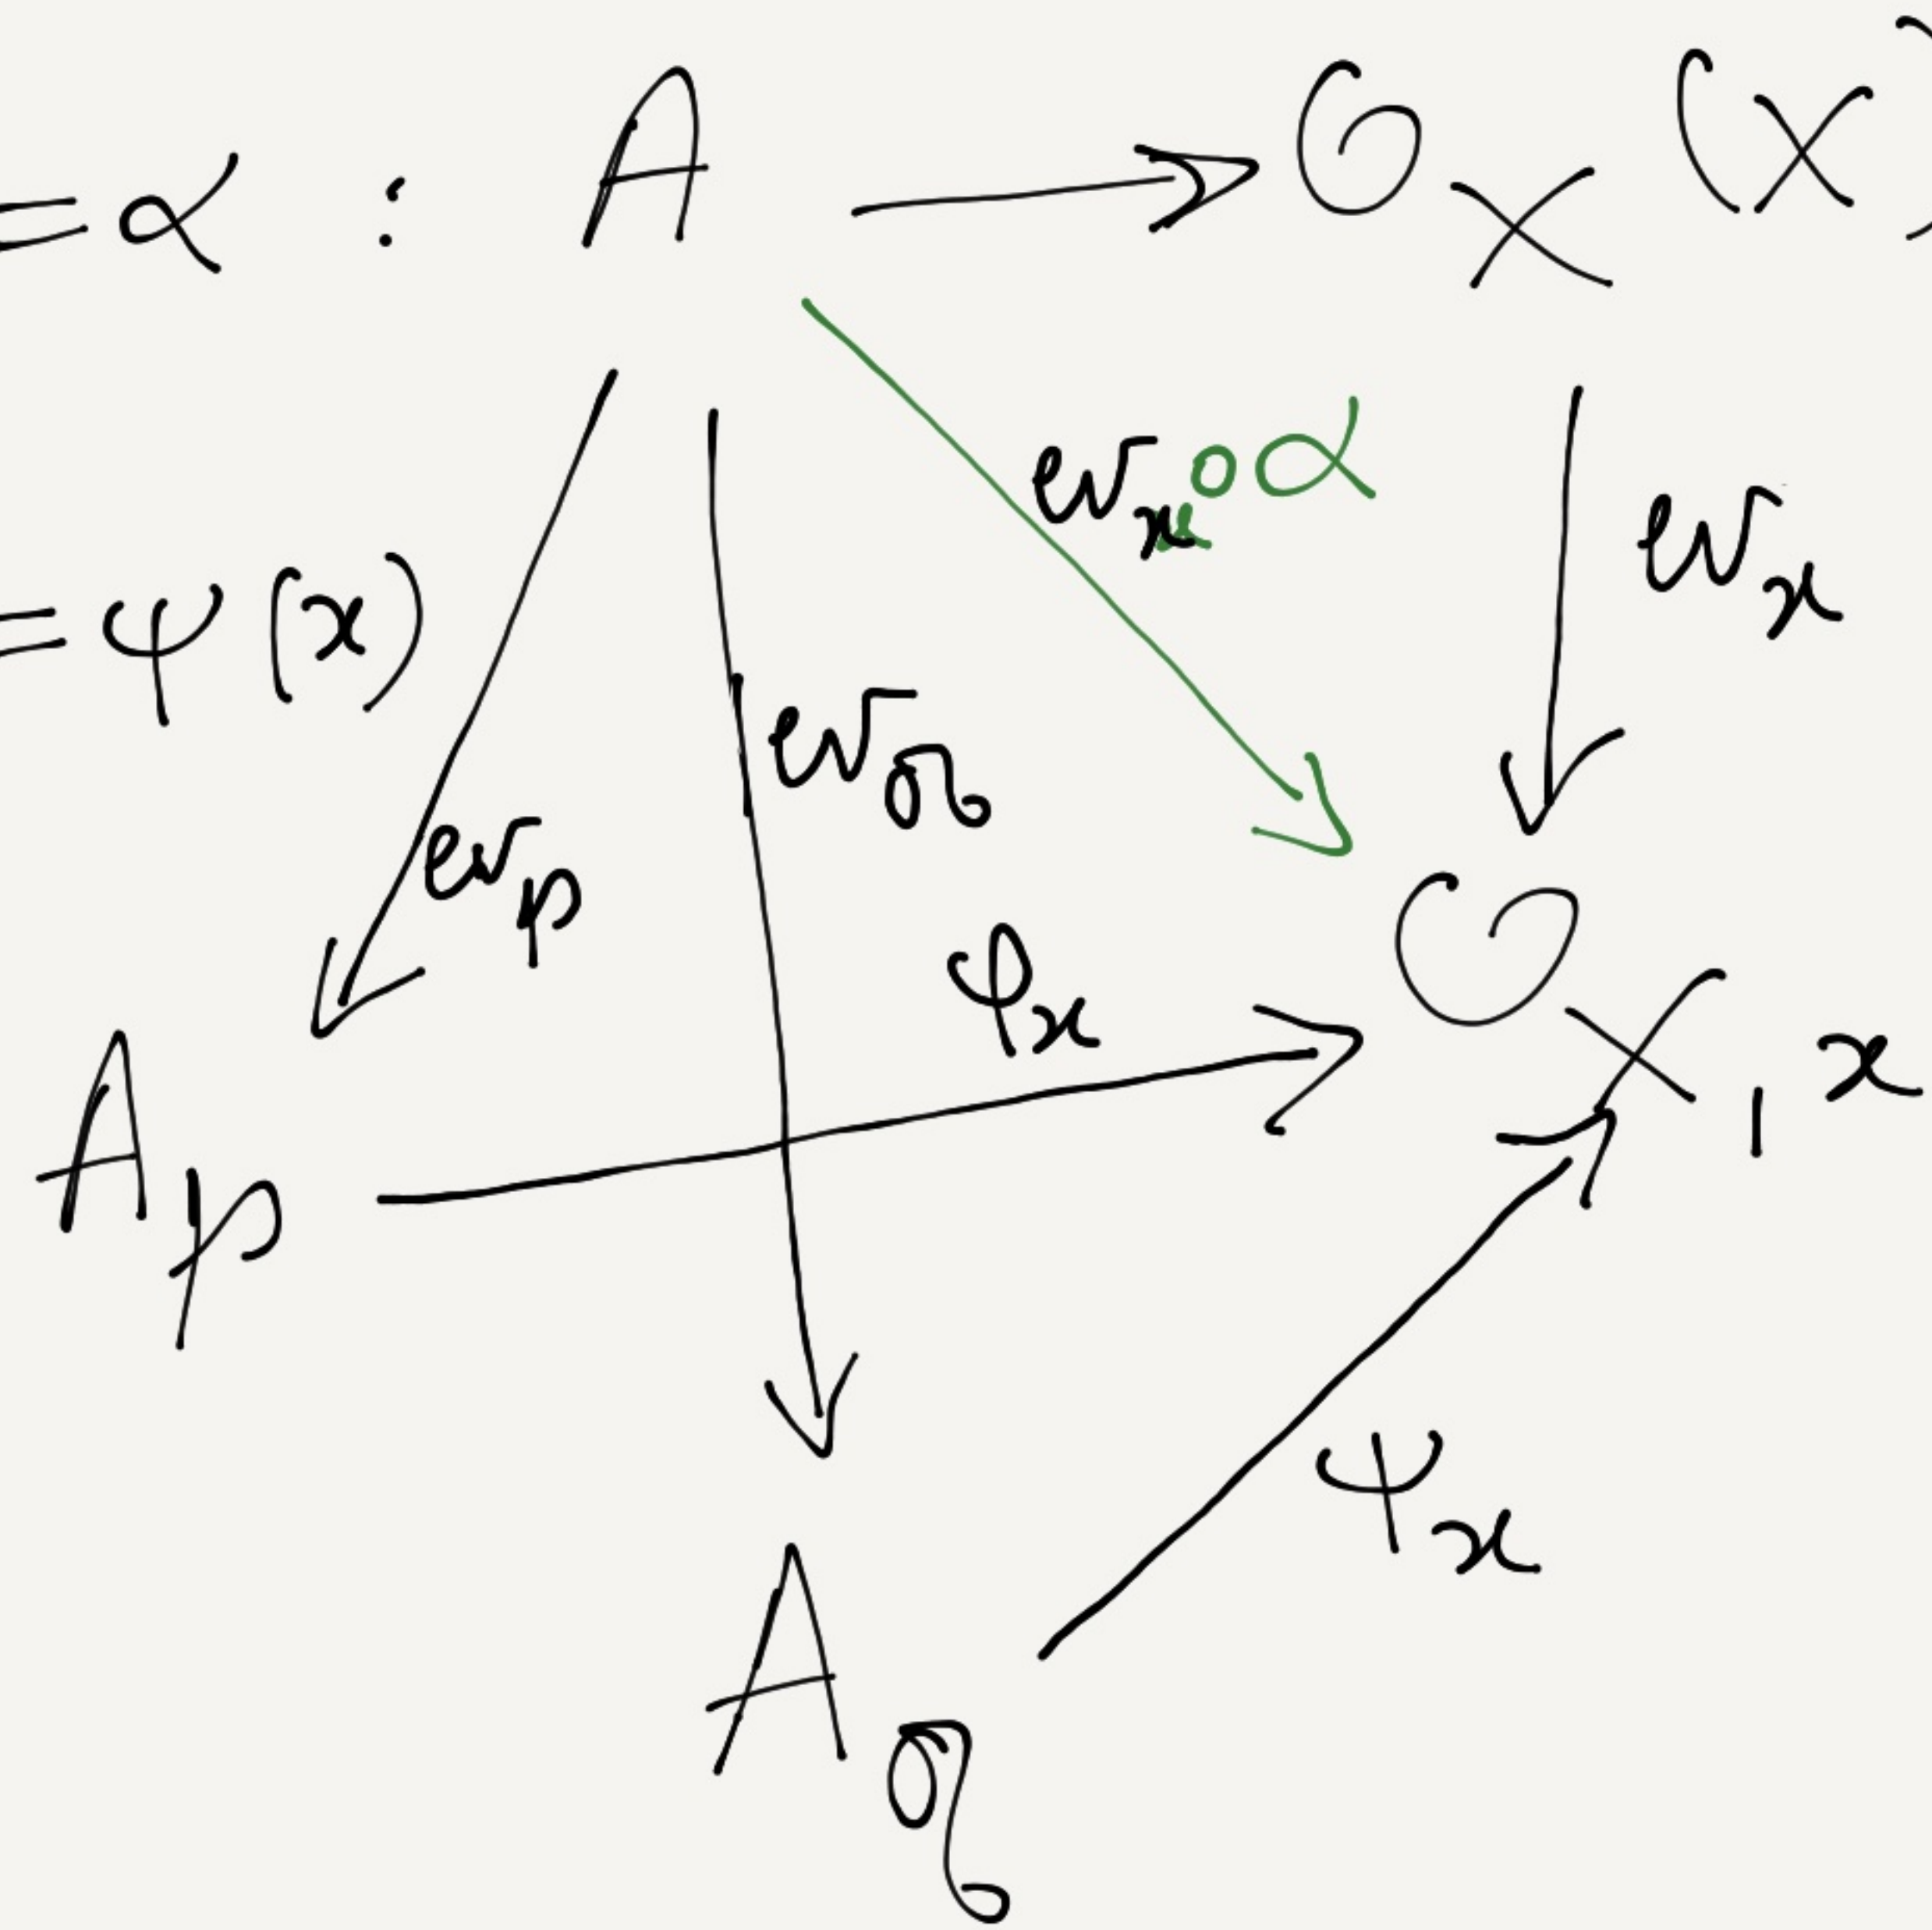 = α : A → O_X (X)
ev_x ∘ α
ev_x
= ψ (x)
ev_q
ev_p
φ_x
O_X,x
A_p
ψ_x
A_q